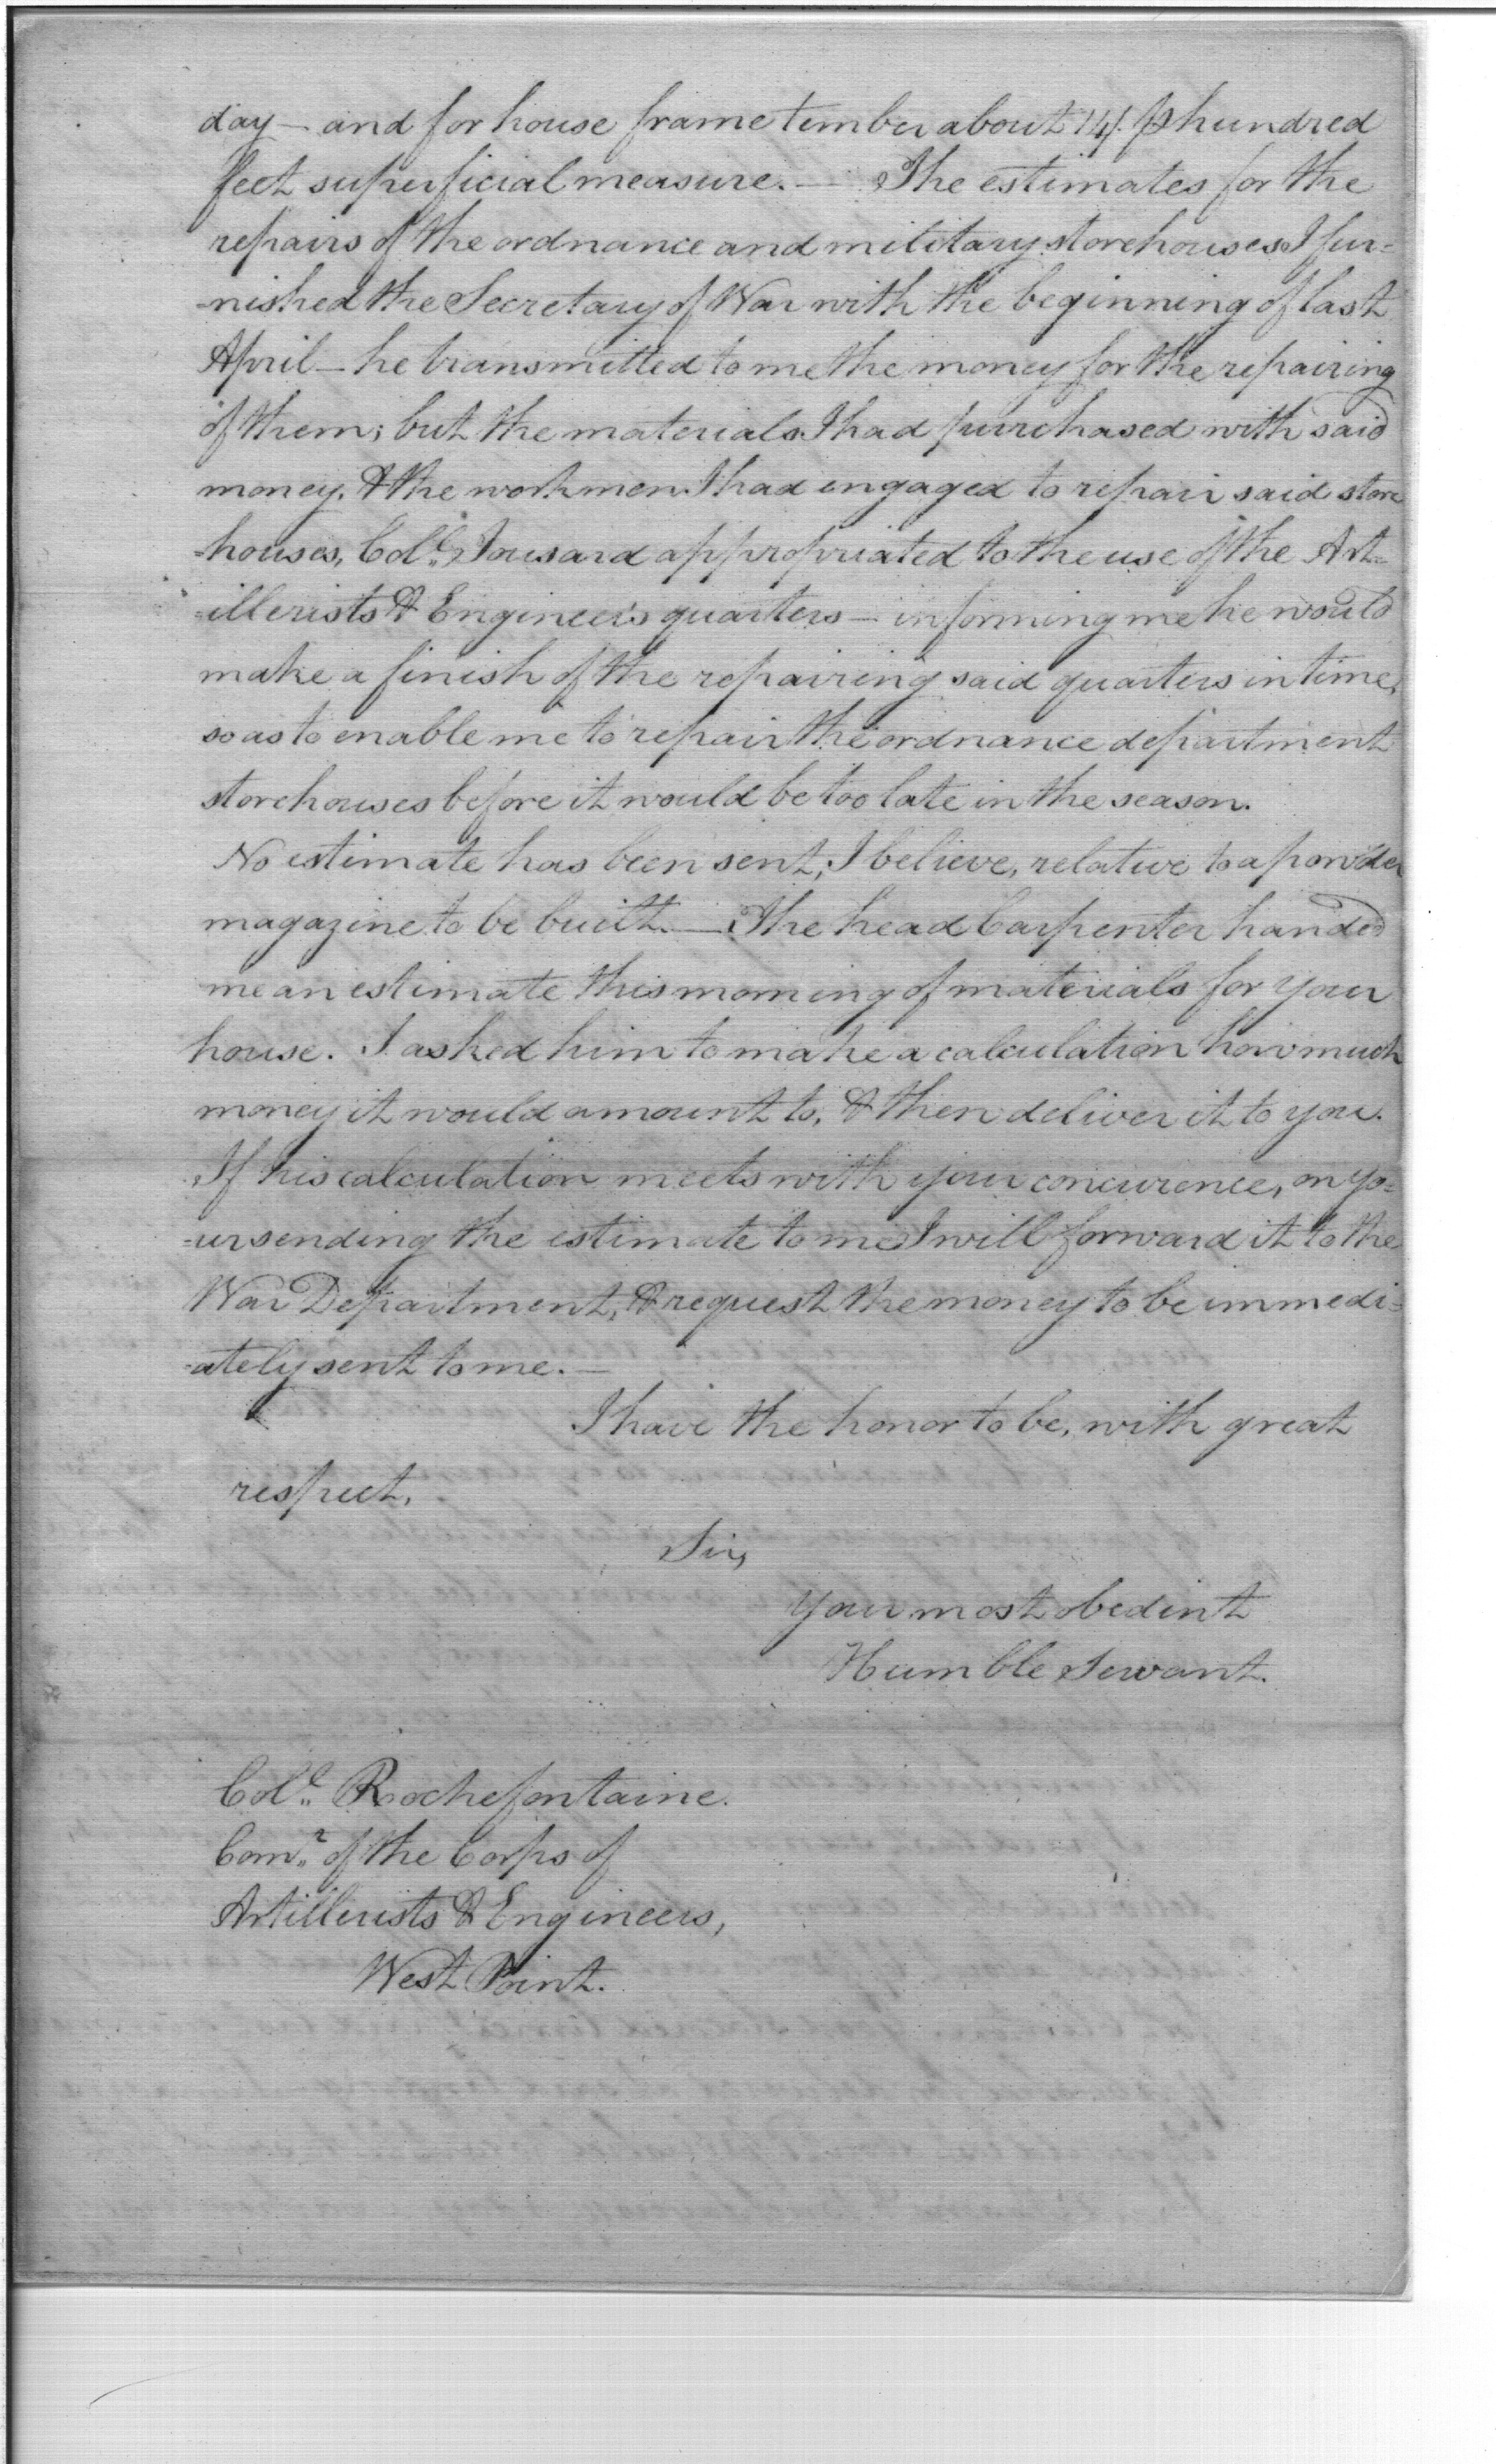 day — and for house frame timber about 14/. ₱ hundred
feet superficial measure. — The estimates for the
repairs of the ordnance and military storehouses I fur=
=nished the Secretary of War with the beginning of last
April — he transmitted to me the money for the repairing
of them; but the materials I had purchased with said
money, & the workmen I had engaged to repair said store
=houses, Col.º Tousard appropriated to the use of the Art=
=illerists & Engineers quarters — informing me he would
make a finish of the repairing said quarters in time,
so as to enable me to repair the ordnance department
storehouses before it would be too late in the season.
No estimate has been sent, I believe, relative to a powder
magazine to be built. — The head Carpenter handed
me an estimate this morning of materials for your
house. I asked him to make a calculation how much
money it would amount to, & then deliver it to you.
If his calculation meets with your concurence, on yo=
=ur sending the estimate to me I will forward it to the
War Department, & request the money to be immedi=
=ately sent to me. —
I have the honor to be, with great
respect,
Sir,
Your most obedint
Humble Servant.
Col.º Rochefontaine.
Com.r of the Corps of
Artillerists & Engineers,
West Point.